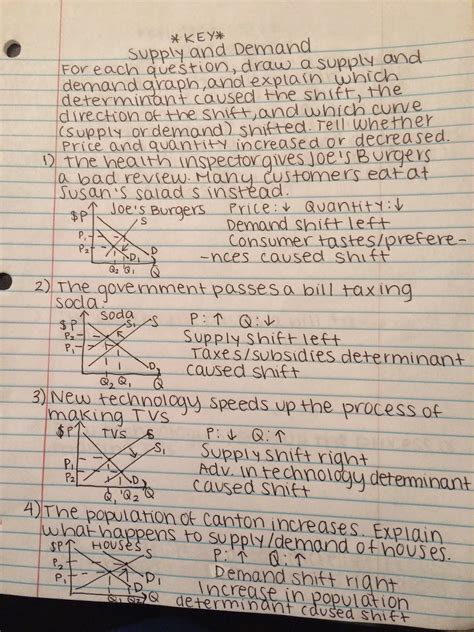 *KEY*
Supply and Demand
For each question, draw a supply and
demand graph, and explain which
determinant caused the shift, the
direction of the shift, and which curve
(supply or demand) shifted. Tell whether
Price and quantity increased or decreased.
1) The health inspector gives Joe's Burgers
a bad review. Many customers eat at
Susan's salads instead.
$P Joe's Burgers Price: ↓ Quantity: ↓
S Demand shift left
P₁ Consumer tastes/prefere-
P₂ D₁ D -nces caused shift
Q₂ Q₁ Q
2) The government passes a bill taxing
soda.
$P soda S₁ S P: ↑ Q: ↓
P₂ Supply shift left
P₁ Taxes/subsidies determinant
D caused shift
Q₂ Q₁ Q
3) New technology speeds up the process of
making TVs
$P TVs S P: ↓ Q: ↑
S₁ Supply shift right
P₁ Adv. in technology determinant
P₂ D caused shift
Q₁ Q₂ Q
4) The population of Canton increases. Explain
what happens to supply/demand of houses.
$P Houses S P: ↑ Q: ↑
P₂ Demand shift right
P₁ D D₁ Increase in population
Q₁ Q₂ Q determinant caused shift